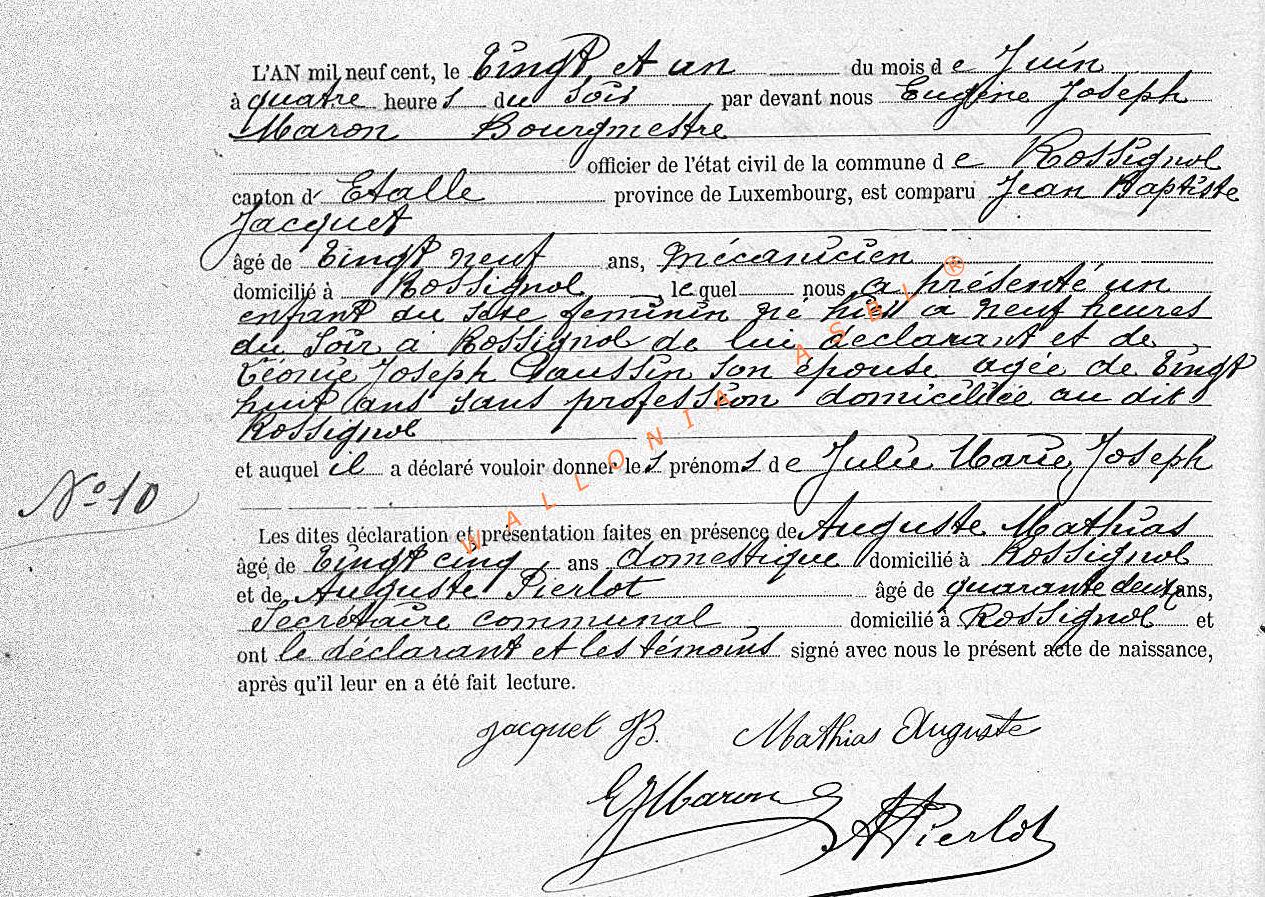 L'AN mil neuf cent, le Vingt et un du mois de Juin
à quatre heures du soir par devant nous Eugène Joseph
Maron Bourgmestre
officier de l'état civil de la commune de Rossignol
canton d' Etalle province de Luxembourg, est comparu Jean Baptiste
Jacquet
âgé de Vingt neuf ans, Mécanicien
domicilié à Rossignol, lequel nous a présenté un
enfant du sexe feminin né hier à neuf heures
du soir à Rossignol de lui déclarant et de
Léonie Joseph son épouse agée de Vingt
huit ans sans profession domiciliée au dit
Rossignol
et auquel il a déclaré vouloir donner les prénoms de Julie Marie Joseph
N° 10
Les dites déclaration et présentation faites en présence de Auguste Mathias
âgé de Vingt cinq ans domestique domicilié à Rossignol
et de Auguste Pierlot âgé de quarante deux ans,
Secrétaire communal domicilié à Rossignol et
ont le déclarant et les témoins signé avec nous le présent acte de naissance,
après qu'il leur en a été fait lecture.
Jacquet B. Mathias Auguste
EJMaron APierlot
WALLONIA ASBL ®